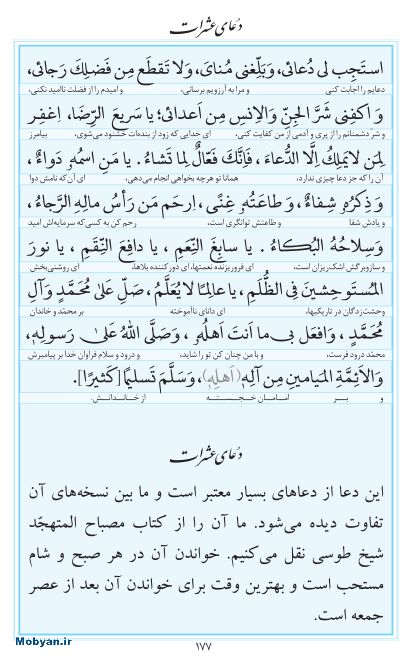 دعای عشرات
استَجِب لی دُعائی، وَبَلِّغنی مُنایَ، وَلا تَقطَع مِن فَضلِکَ رَجائی،
دعایم را اجابت کنی و مرا به آرزویم برسانی، و امیدم را از فضلت ناامید نکنی،
وَ اکفِنی شَرَّ الجِنِّ وَالاِنسِ مِن اَعدائی؛ یا سَریعَ الرِّضا، اِغفِر
و شر دشمنانم را از پری و آدمی از من کفایت کنی، ای خدایی که زود از بنده‌ات خشنود می‌شوی، بیامرز
لِمَن لایَملِکُ اِلَّا الدُّعاءَ، فَاِنَّکَ فَعّالٌ لِما تَشاءُ. یا مَنِ اسمُهُ دَواءٌ،
آن را که جز دعا چیزی ندارد، همانا تو هرچه بخواهی انجام می‌دهی، ای آن‌که نامش دوا
وَ ذِکرُهُ شِفاءٌ، وَ طاعَتُهُ غِنًی، اِرحَم مَن رَأسُ مالِهِ الرَّجاءُ،
و یادش شفا و طاعتش توانگری است، رحم کن به کسی‌که سرمایه‌اش امید
وَ سِلاحُهُ البُکاءُ. یا سابِغَ النِّعَمِ، یا دافِعَ النِّقَمِ، یا نورَ
و سازوبرگش اشک‌ریزان است، ای فروریزنده نعمتها، ای دورکننده بلاها، ای روشنی‌بخش
المُستَوحِشینَ فِی الظُّلَمِ، یا عالِمًا لا یُعَلَّمُ، صَلِّ عَلیٰ مُحَمَّدٍ وَآلِ
وحشت‌زدگان در تاریکیها، ای دانای ناآموخته بر محمّد و خاندان
مُحَمَّدٍ، وَافعَل بی ما اَنتَ اَهلُهُ، وَ صَلَّی اللهُ عَلیٰ رَسولِهِ،
محمّد درود فرست، و با من چنان کن تو را شاید، و درود و سلام فراوان خدا بر پیامبرش
وَ الاَئِمَّةِ المَیامینِ مِن آلِهِ (اَهلِهِ)، وَسَلَّمَ تَسلیمًا [کَثیرًا].
و بر امامان خجسته از خاندانش.
دعای عشرات
این دعا از دعاهای بسیار معتبر است و ما بین نسخه‌های آن
تفاوت دیده می‌شود. ما آن را از کتاب مصباح المتهجّد
شیخ طوسی نقل می‌کنیم. خواندن آن در هر صبح و شام
مستحب است و بهترین وقت برای خواندن آن بعد از عصر
جمعه است.
Mobyan.ir
۱۷۷